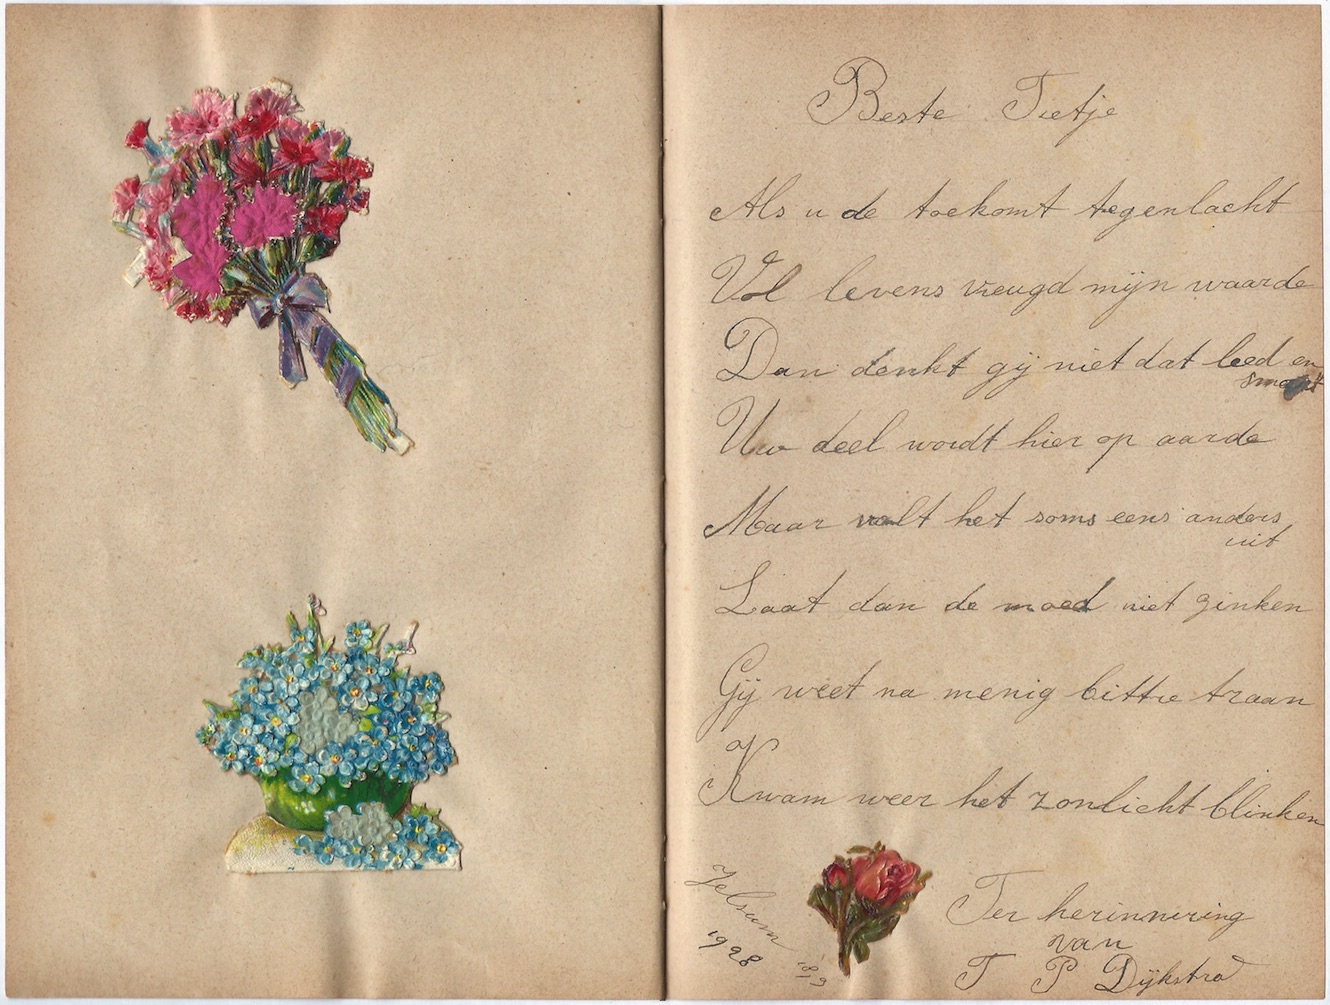 Beste Tietje
Als u de toekomt tegenlacht
Vol levens vreugd mijn waarde
Dan denkt gij niet dat leed en
smart
Uw deel wordt hier op aarde
Maar valt het soms eens anders
uit
Laat dan de moed niet zinken
Gij weet na menig bittre traan
Kwam weer het zonlicht blinken
Jelsum
1928
Ter herinnering
van
T P Dijkstra